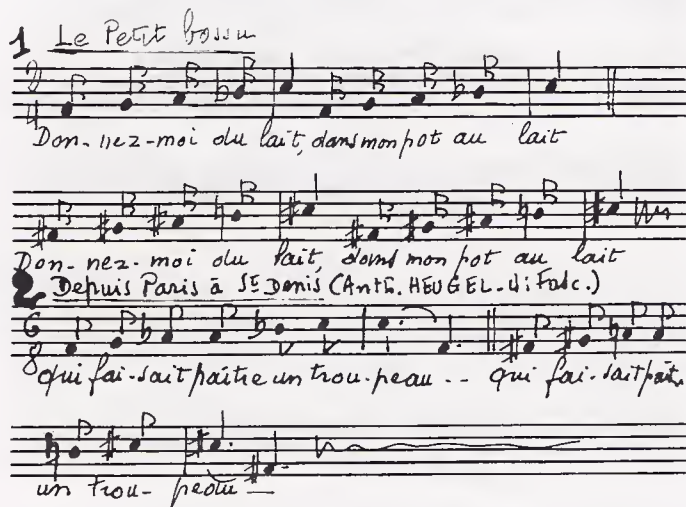 1 Le Petit bossu
2
4
Don-nez-moi du lait, dans mon pot au lait
Don-nez-moi du lait, dans mon pot au lait
2. Depuis Paris à St Denis (Anth. HEUGEL - 4: Fasc.)
6
8
qui fai-sait paître un trou-peau -- qui fai-sait paître
un trou-peau —